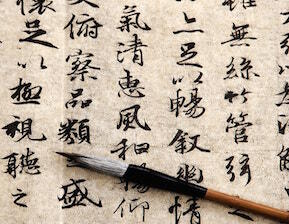 無絲竹管弦之
亦足以暢敘幽情
氣清惠風和暢仰
俯察品類盛
懷足以極視聽之